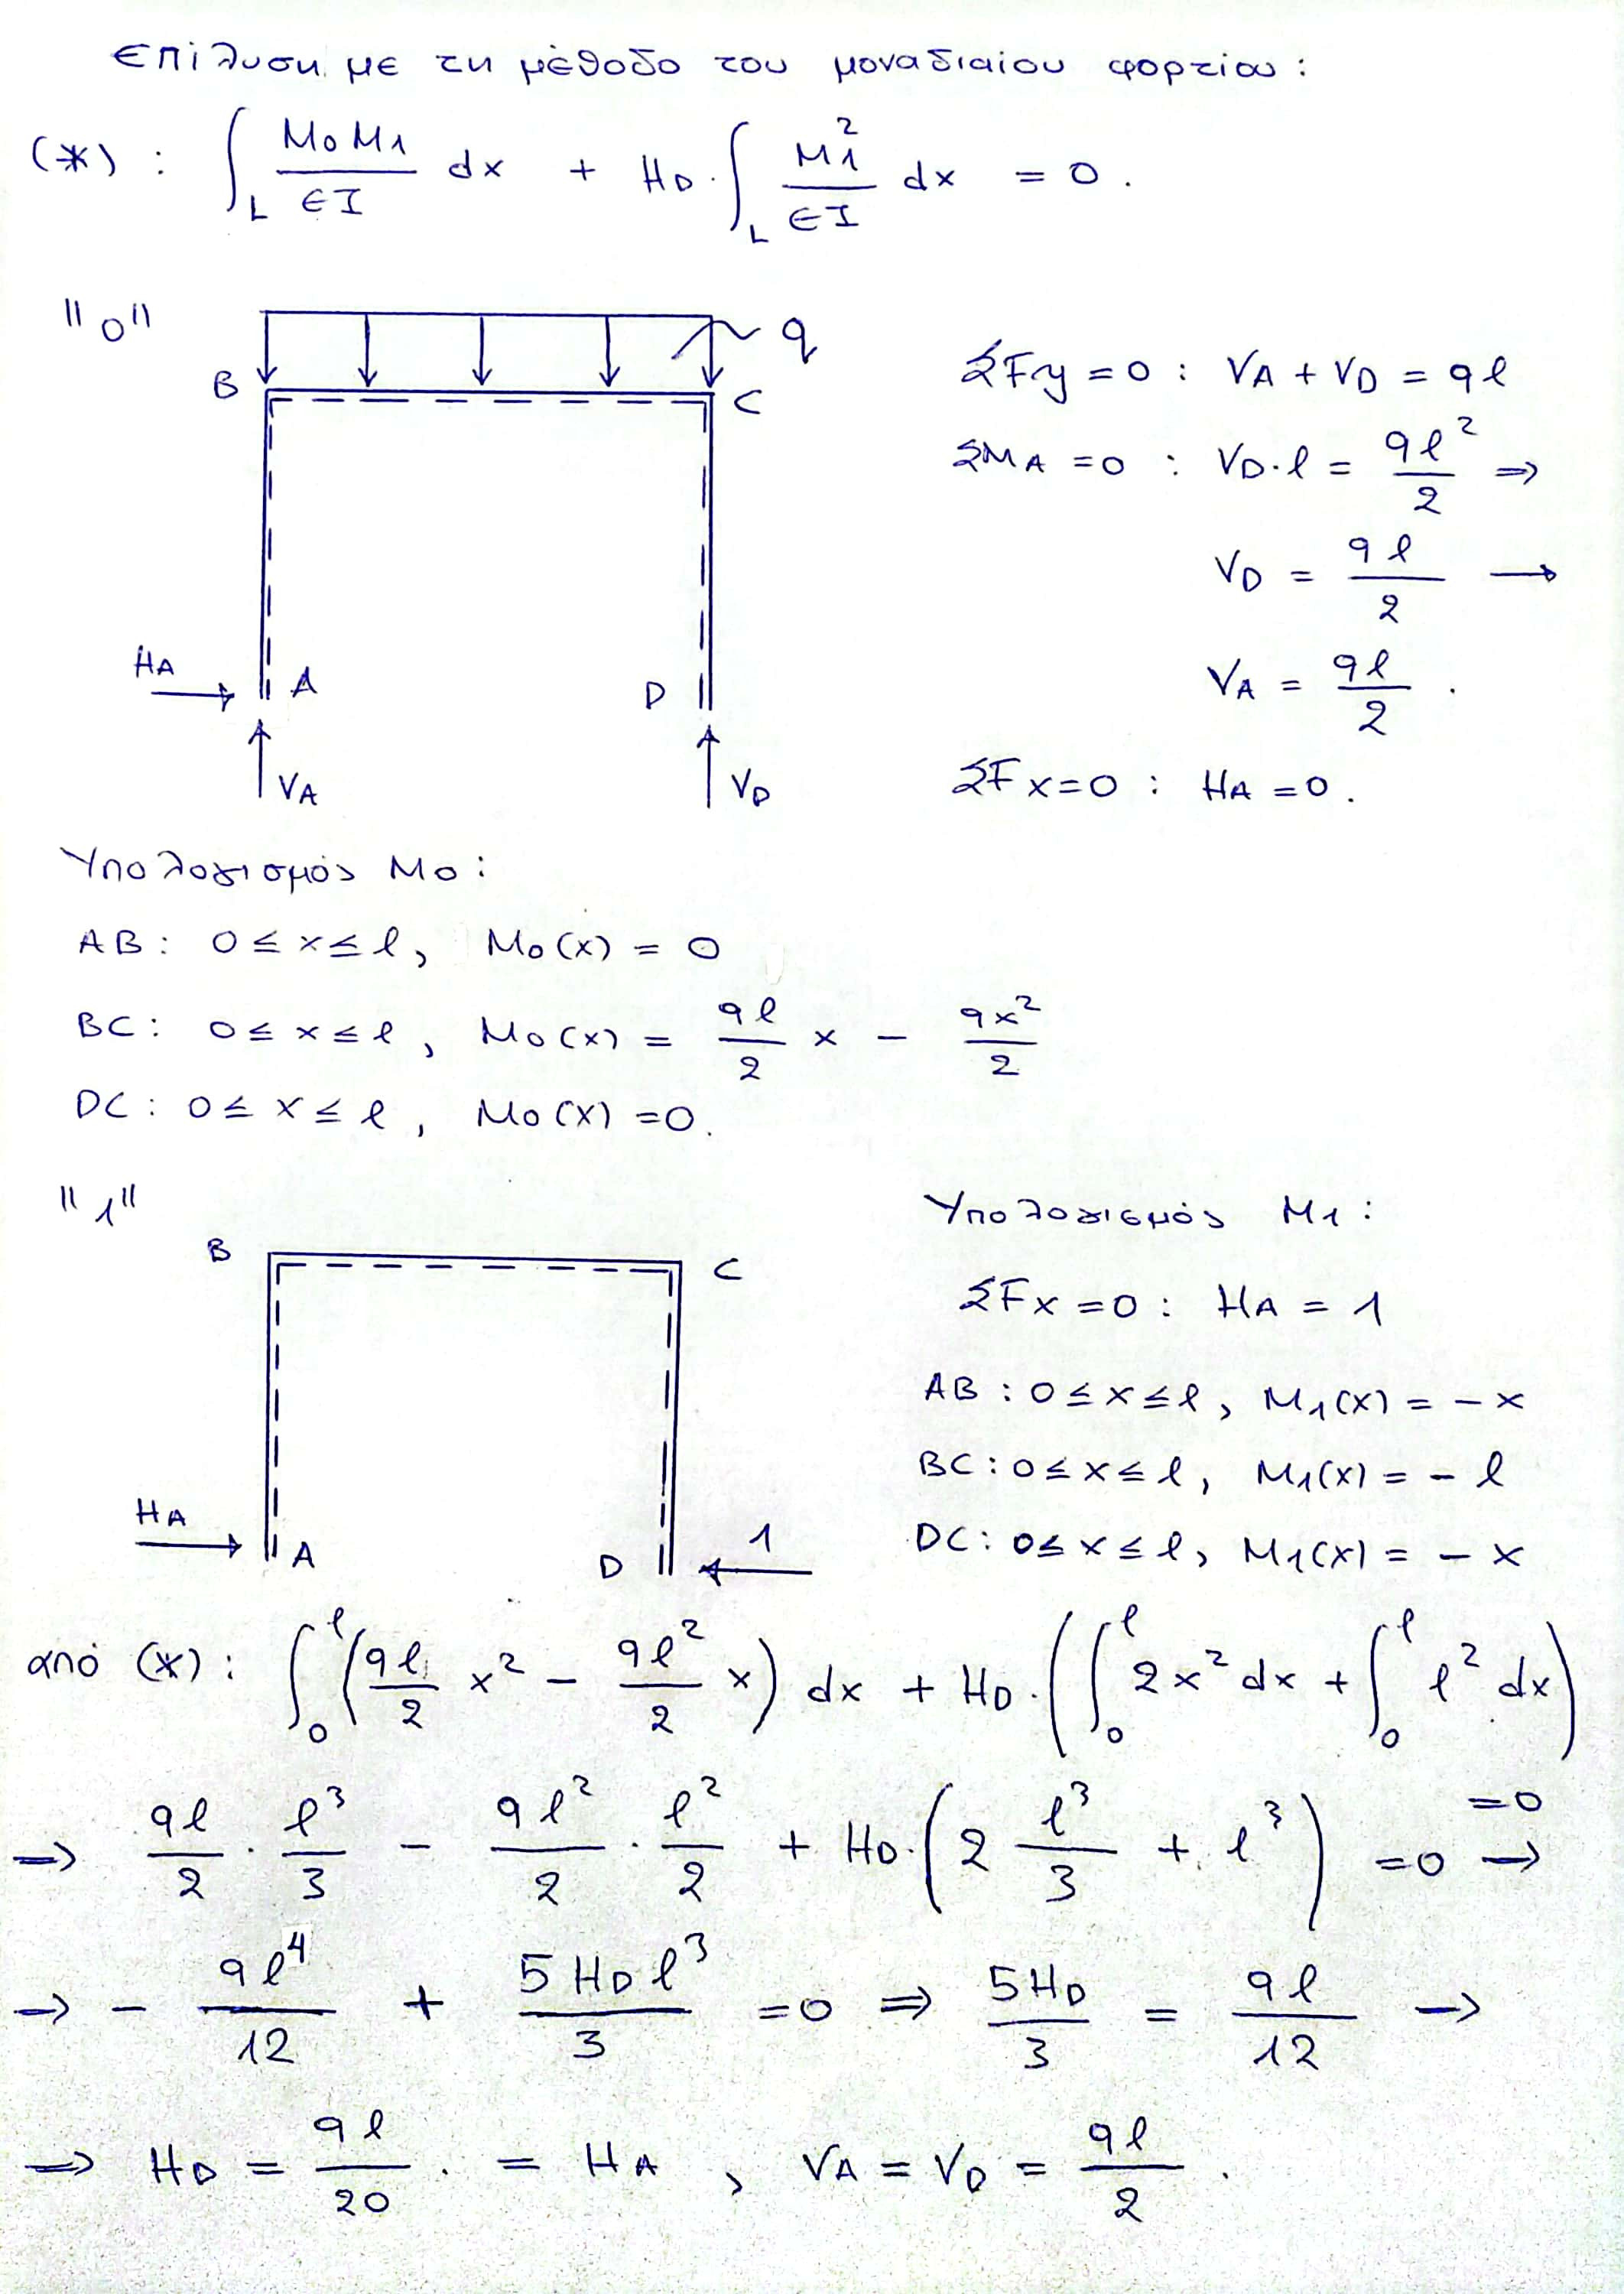 Επίλυση με τη μέθοδο του μοναδιαίου φορτίου :
(*) : ∫_L M0M1/EI dx + HD · ∫_L M1²/EI dx = 0 .
"0"
q
B
C
HA
A
D
VA
VD
ΣFy = 0 : VA + VD = qℓ
ΣMA = 0 : VD·ℓ = qℓ²/2 ⇒
VD = qℓ/2 →
VA = qℓ/2 .
ΣFx = 0 : HA = 0 .
Υπολογισμός M0 :
AB : 0 ≤ x ≤ ℓ, M0(x) = 0
BC : 0 ≤ x ≤ ℓ, M0(x) = qℓ/2 x − qx²/2
DC : 0 ≤ x ≤ ℓ, M0(x) = 0.
"1"
B
C
HA
A
D
1
Υπολογισμός M1 :
ΣFx = 0 : HA = 1
AB : 0 ≤ x ≤ ℓ, M1(x) = − x
BC : 0 ≤ x ≤ ℓ, M1(x) = − ℓ
DC : 0 ≤ x ≤ ℓ, M1(x) = − x
από (*) : ∫_0^ℓ (qℓ/2 x² − qℓ²/2 x) dx + HD · (∫_0^ℓ 2x² dx + ∫_0^ℓ ℓ² dx)
=0
⇒ qℓ/2 · ℓ³/3 − qℓ²/2 · ℓ²/2 + HD · (2 ℓ³/3 + ℓ³) = 0 →
→ − qℓ⁴/12 + 5HDℓ³/3 = 0 ⇒ 5HD/3 = qℓ/12 →
⇒ HD = qℓ/20 . = HA , VA = VD = qℓ/2 .